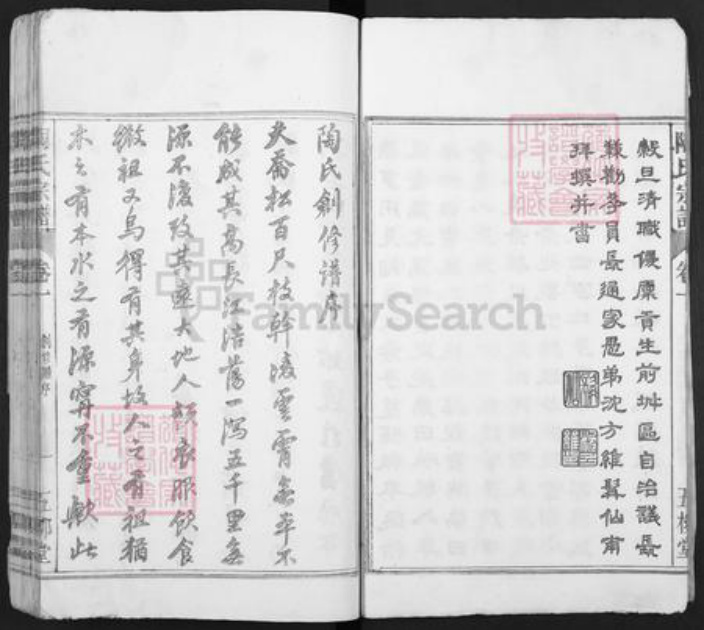 陶氏宗譜 卷一 五柳堂
穀旦清職優廩貢生前 區自治議長
兼勸 員長通家愚弟沈方維 仙甫
拜撰并書
陶氏創修譜序
夫喬松百尺枝幹凌雲霄無卒不
能成其高長江浩蕩一瀉五千里無
源不復致其遠大地人 衣服飲食
微祖又烏得有其身故人之有祖猶
木之有本水之有源寧不重歟此
陶氏宗譜 卷一 創修譜序 一 五柳堂
FamilySearch